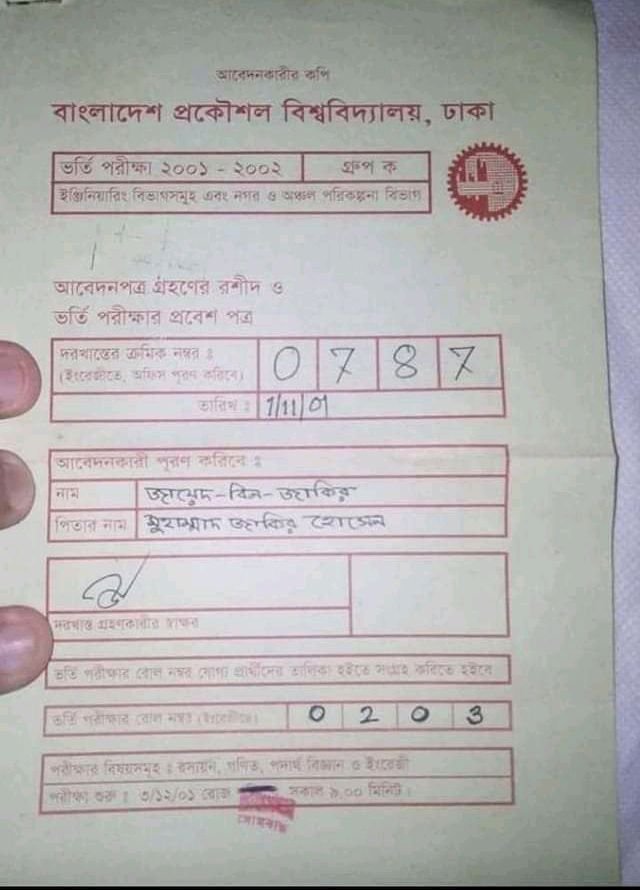 আবেদনকারীর কপি
বাংলাদেশ প্রকৌশল বিশ্ববিদ্যালয়, ঢাকা
ভর্তি পরীক্ষা ২০০১ - ২০০২ গ্রুপ ক
ইঞ্জিনিয়ারিং বিভাগসমূহ এবং নগর ও অঞ্চল পরিকল্পনা বিভাগ
আবেদনপত্র গ্রহণের রশীদ ও
ভর্তি পরীক্ষার প্রবেশ পত্র
দরখাস্তের ক্রমিক নম্বর : 0 7 8 7
(ইংরেজীতে, অফিস পূরণ করিবে)
তারিখ : 1/11/01
আবেদনকারী পূরণ করিবে :
নাম জায়েদ-বিন-জাকির
পিতার নাম মুহাম্মাদ জাকির হোসেন
দরখাস্ত গ্রহণকারীর স্বাক্ষর
ভর্তি পরীক্ষার রোল নম্বর যোগ্য প্রার্থীদের তালিকা হইতে সংগ্রহ করিতে হইবে
ভর্তি পরীক্ষার রোল নম্বর (ইংরেজীতে) 0 2 0 3
পরীক্ষার বিষয়সমূহ : রসায়ন, গণিত, পদার্থ বিজ্ঞান ও ইংরেজী
পরীক্ষা শুরু : ৩/১২/০১ রোজ সকাল ৯.০০ মিনিট।
সোমবার